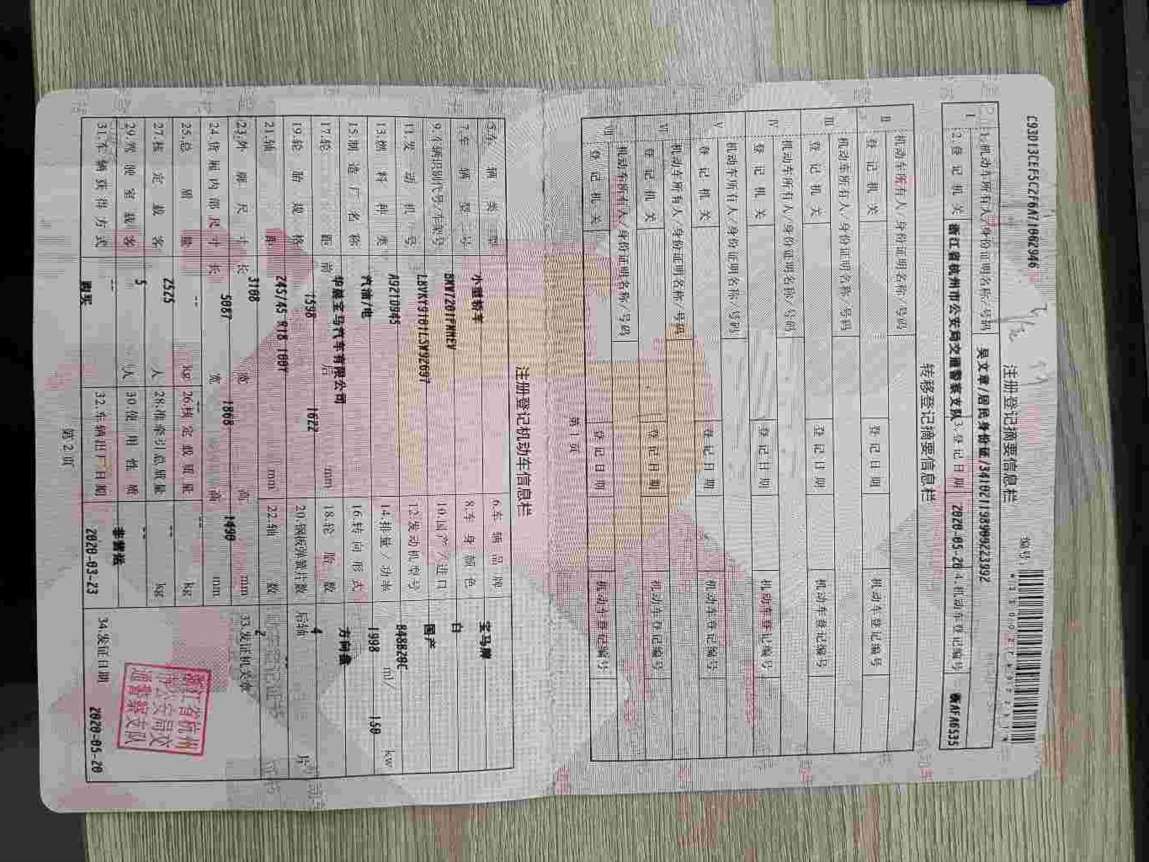 注册登记摘要信息栏
编号:
1.机动车所有人/身份证明名称/号码 吴文章/居民身份证/341021198909223992
2.登记机关 浙江省杭州市公安局交通警察支队 3.登记日期 2020-05-20 4.机动车登记编号 浙AFA6535
转移登记摘要信息栏
II 机动车所有人/身份证明名称/号码
登记机关 登记日期 机动车登记编号
III 机动车所有人/身份证明名称/号码
登记机关 登记日期 机动车登记编号
IV 机动车所有人/身份证明名称/号码
登记机关 登记日期 机动车登记编号
V 机动车所有人/身份证明名称/号码
登记机关 登记日期 机动车登记编号
VI 机动车所有人/身份证明名称/号码
登记机关 登记日期 机动车登记编号
VII 机动车所有人/身份证明名称/号码
登记机关 登记日期 机动车登记编号
第1页
注册登记机动车信息栏
5.车辆类型 小型轿车 6.车辆品牌 宝马牌
7.车辆型号 8.车身颜色 白
9.车辆识别代号/车架号 10.国产/进口 国产
11.发动机号 A9210945 12.发动机型号 B48B20C
13.燃料种类 汽油/电 14.排量/功率 1998 ml/ 150 kw
15.制造厂名称 华晨宝马汽车有限公司 16.转向形式 方向盘
17.轮距 前 1598 后 1622 mm 18.轮胎数 4
19.轮胎规格 245/45 R18 100Y 20.钢板弹簧片数 后轴 -- 片
21.轴距 3108 mm 22.轴数 2
23.外廓尺寸 长 5087 宽 1868 高 1490 mm 33.发证机关章
24.货厢内部尺寸 长 -- 宽 -- 高 -- mm
25.总质量 2525 kg 26.核定载质量 -- kg
27.核定载客 5 人 28.准牵引总质量 -- kg
29.驾驶室载客 -- 人 30.使用性质 非营运
31.车辆获得方式 购买 32.车辆出厂日期 2020-03-23 34.发证日期 2020-05-20
浙江省杭州
市公安局交
通警察支队
第2页